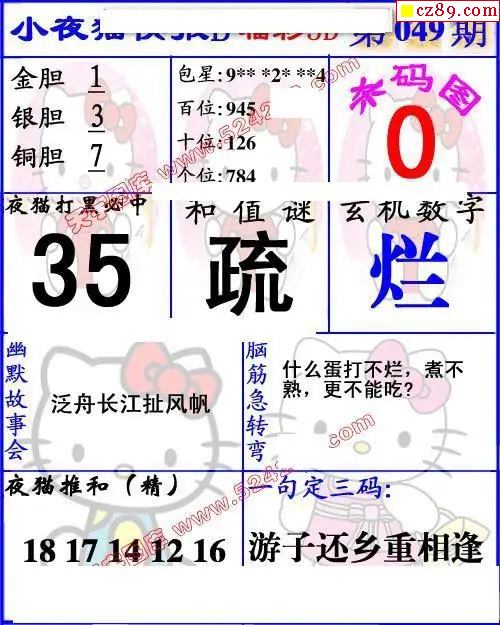 cz89.com
小夜猫快报D福彩3D 第049期
金胆 1
银胆 3
铜胆 7
包星：9** *2* **4
百位：945
十位：126
个位：784
杀码图
0
夜猫打黑必中
35
和值谜
疏
玄机数字
烂
幽默故事会
泛舟长江扯风帆
脑筋急转弯
什么蛋打不烂，煮不
熟，更不能吃?
夜猫推和（精）
18 17 14 12 16
一句定三码：
游子还乡重相逢